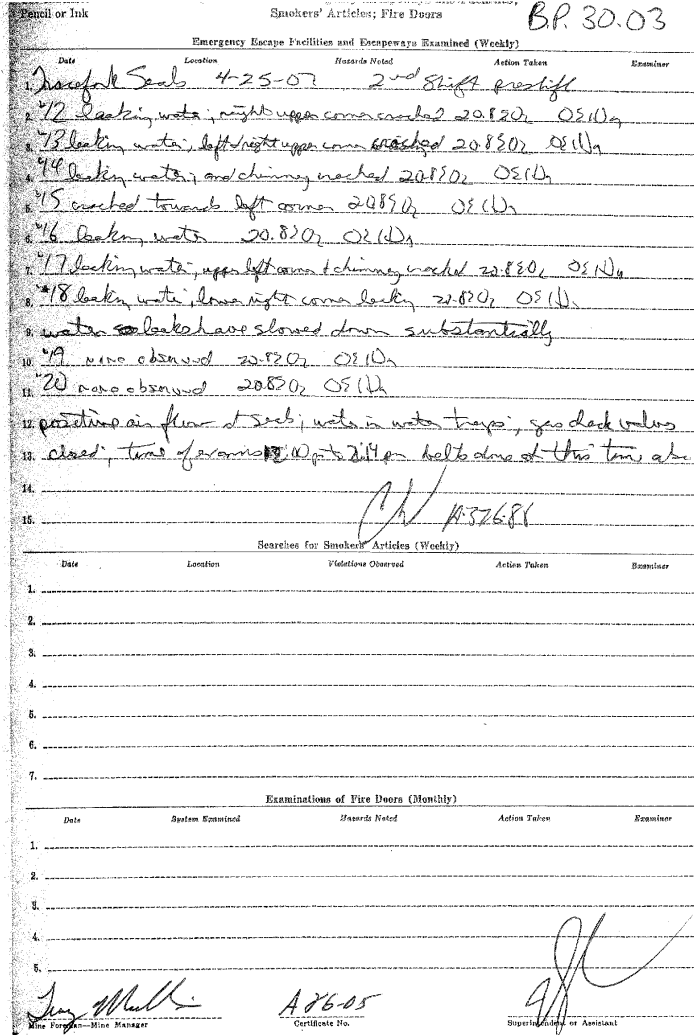 Pencil or Ink
Smokers' Articles; Fire Doors
B.P. 30.03
Emergency Escape Facilities and Escapeways Examined (Weekly)
Date Location Hazards Noted Action Taken Examiner
1. Seals 4-25-07 2nd Shift preshift
2. #12 leaking water; right upper corner cracked 20.8%O2 0%CH4
3. #13 leaking water, left & right upper corner cracked 20.8%O2 0%CH4
4. #14 leaking water; and chimney cracked 20.8%O2 0%CH4
5. #15 cracked towards left corner 20.8%O2 0%CH4
6. #16 leaking water 20.8%O2 0%CH4
7. #17 leaking water, upper left corner & chimney cracked 20.8%O2 0%CH4
8. #18 leaking water, lower right corner leaking 20.8%O2 0%CH4
9. water leaks have slowed down substantially
10. #19 none observed 20.8%O2 0%CH4
11. #20 none observed 20.8%O2 0%CH4
12. positive air flow at seals; water in water traps, gas check valves
13. closed, time of exams to pm belts down at this time also
14.
15. A-326-88
Searches for Smokers' Articles (Weekly)
Date Location Violations Observed Action Taken Examiner
1.
2.
3.
4.
5.
6.
7.
Examinations of Fire Doors (Monthly)
Date System Examined Hazards Noted Action Taken Examiner
1.
2.
3.
4.
5.
A 86-05
Mine Foreman—Mine Manager Certificate No. Superintendent or Assistant